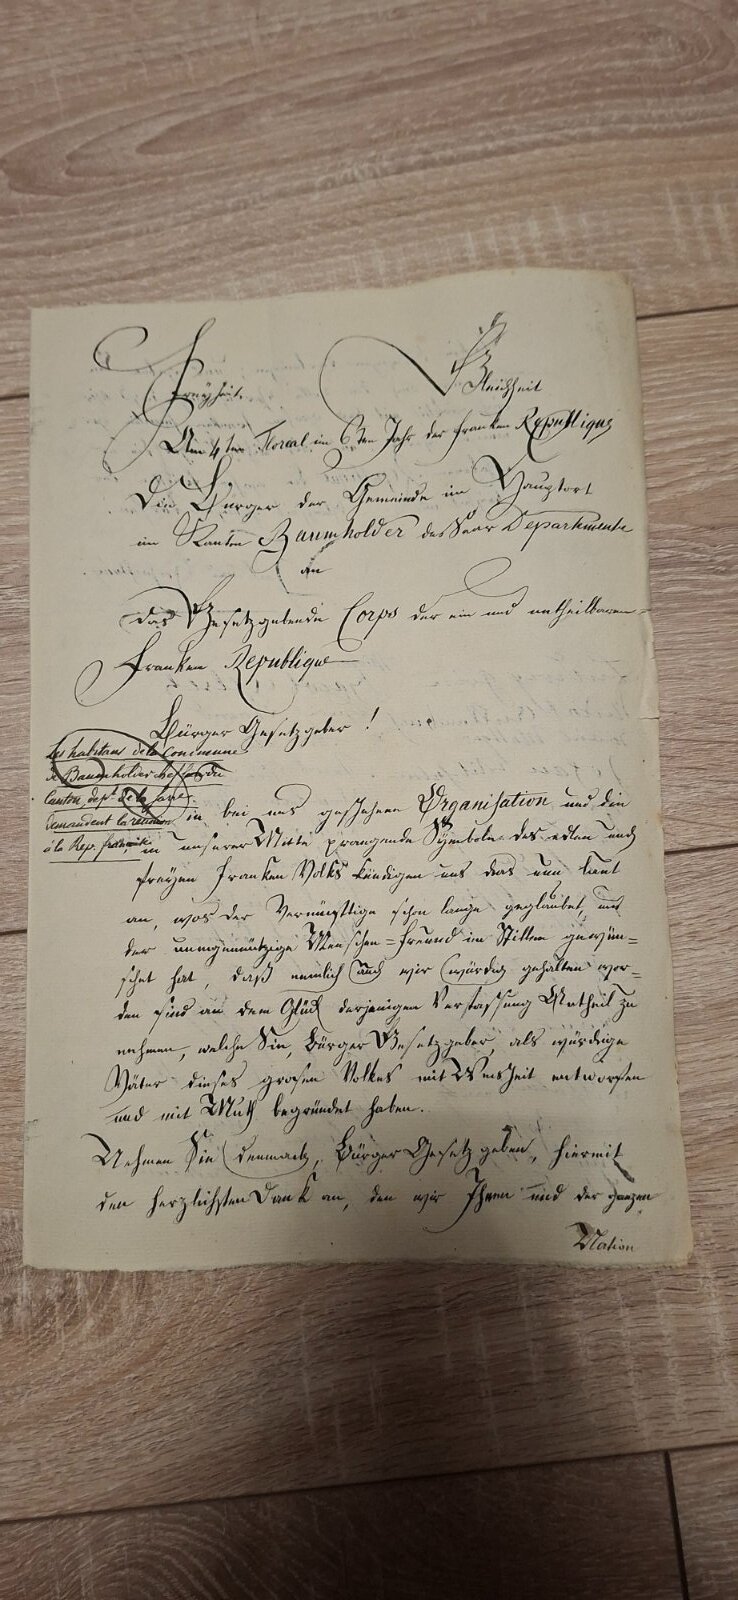 Freyheit. Gleichheit
Am 4ten Floreal im 6ten Jahr der Franken Republique
Die Bürger der Gemeinde im Hauptort
im Kanton Baumholder des Saar Departements
an
das Gesetzgebende Corps der ein und untheilbaren
Franken Republique
Bürger Gesetzgeber!
Les habitans de la Commune
de Baumholder chef lieu du
Canton, dept. de la Sarre
demandent la réunion
à la Rep. française
Die bei uns geschehene Organisation und die
in unserer Mitte prangende Symbole des edlen und
freyen Franken Volks kündigen uns das nun laut
an, was der Vernünftige schon lange geglaubet, und
der uneigennützige Menschen=freund im Stillen gewün=
schet hat, daß nemlich auch wir würdig gehalten wor=
den sind an dem Glück derjenigen Verfassung Antheil zu
nehmen, welche Sie, Bürger Gesetzgeber, als würdige
Väter dieses grosen Volkes mit Weisheit entworfen
und mit Muth begründet haben.
Nehmen Sie demnach, Bürger Gesetzgeber, hiermit
den herzlichsten Dank an, den wir Ihnen und der ganzen
Nation